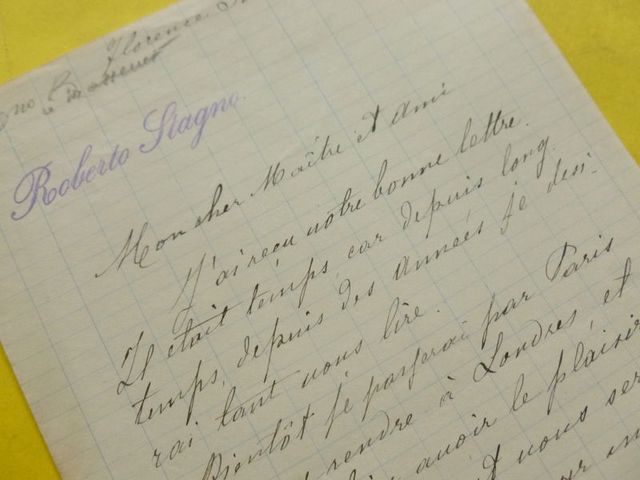 Florence
à Massenet
Roberto Stagno
Mon cher Maître et ami
J'ai reçu votre bonne lettre.
Il était temps, car depuis long.
temps, depuis des années je desi-
rai tant vous lire.
Bientôt je passerai par Paris
rendre à Londres, et
avoir le plaisir
vous ser